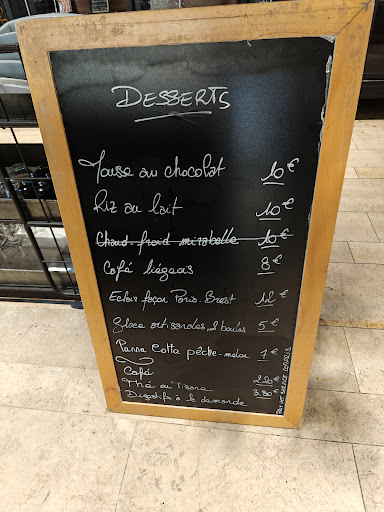 DESSERTS
Mousse au chocolat 10 €
Riz au lait 10 €
Chaud froid mirabelle 10 €
Café liégeois 8 €
Eclair façon Paris. Brest 12 €
Glace artisanales 2 boules 5 €
Panna Cotta pêche-melon 7 €
Café 2.20 €
Thé ou Tisane 3.80 €
Digestifs à la demande
PRIX NET SERVICE COMPRIS